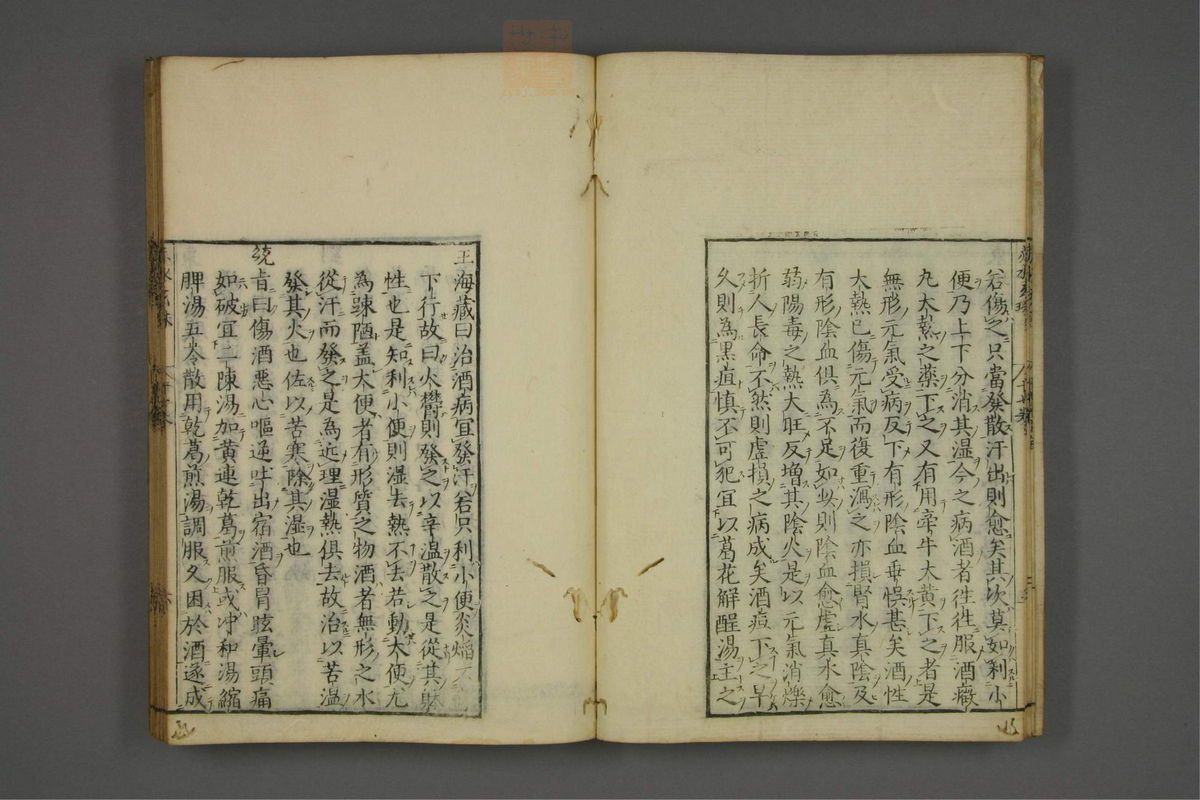 若傷之只當發散汗出則愈矣其次莫如利小
便乃上下分消其湿今之病酒者徃徃服酒癥
丸大熱之藥下之又有用牽牛大黃下之者是
無形元氣受病反下有形陰血乖悞甚矣酒性
大熱已傷元氣而復重瀉之亦損腎水真陰及
有形陰血俱為不足如此則陰血愈虛真水愈
弱陽毒之熱大旺反增其陰火是以元氣消爍
折人長命不然則虛損之病成矣酒疸下之早
久則為黑疸慎不可犯宜以葛花解酲湯主之
王海藏曰治酒病宜發汗若只利小便炎焰不
下行故曰火欝則發之以辛温散之是從其躰
性也是知利小便則湿去熱不去若動大便尤
為踈陋盖大便者有形質之物酒者無形之水
從汗而發之是為近理湿熱俱去故治以苦温
發其火也佐以苦寒除其湿也
統旨曰傷酒惡心嘔逆吐出宿酒昏冒眩暈頭痛
如破宜二陳湯加黃連乾葛煎服或冲和湯縮
脾湯五苓散用乾葛煎湯調服久困於酒遂成